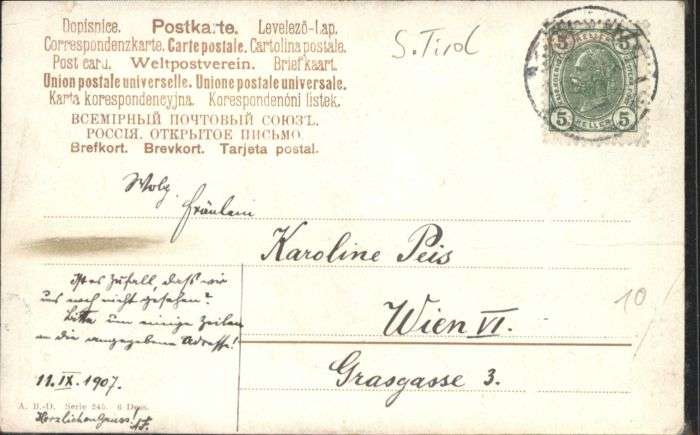 Dopisnice. Postkarte. Levelező-Lap.
Correspondenzkarte. Carte postale. Cartolina postale.
Post card. Weltpostverein. Briefkaart.
Union postale universelle. Unione postale universale.
Karta korespondencyjna. Korespondenóni listek.
ВСЕМІРНЫЙ ПОЧТОВЫЙ СОЮЗЪ.
РОССІЯ. ОТКРЫТОЕ ПИСЬМО.
Brefkort. Brevkort. Tarjeta postal.
S. Tirol
5 HELLER 5
5 HELLER 5
Fräulein
Karoline Peis
Wien VI.
Grasgasse 3.
10/
Ist es Zufall, daß wir
uns noch nicht gesehen?
Bitte um einige Zeilen
an die angegebene Adresse!
11. IX. 1907.
A. B.-D. Serie 245. 6 Dess.
Herzlichen Gruss!